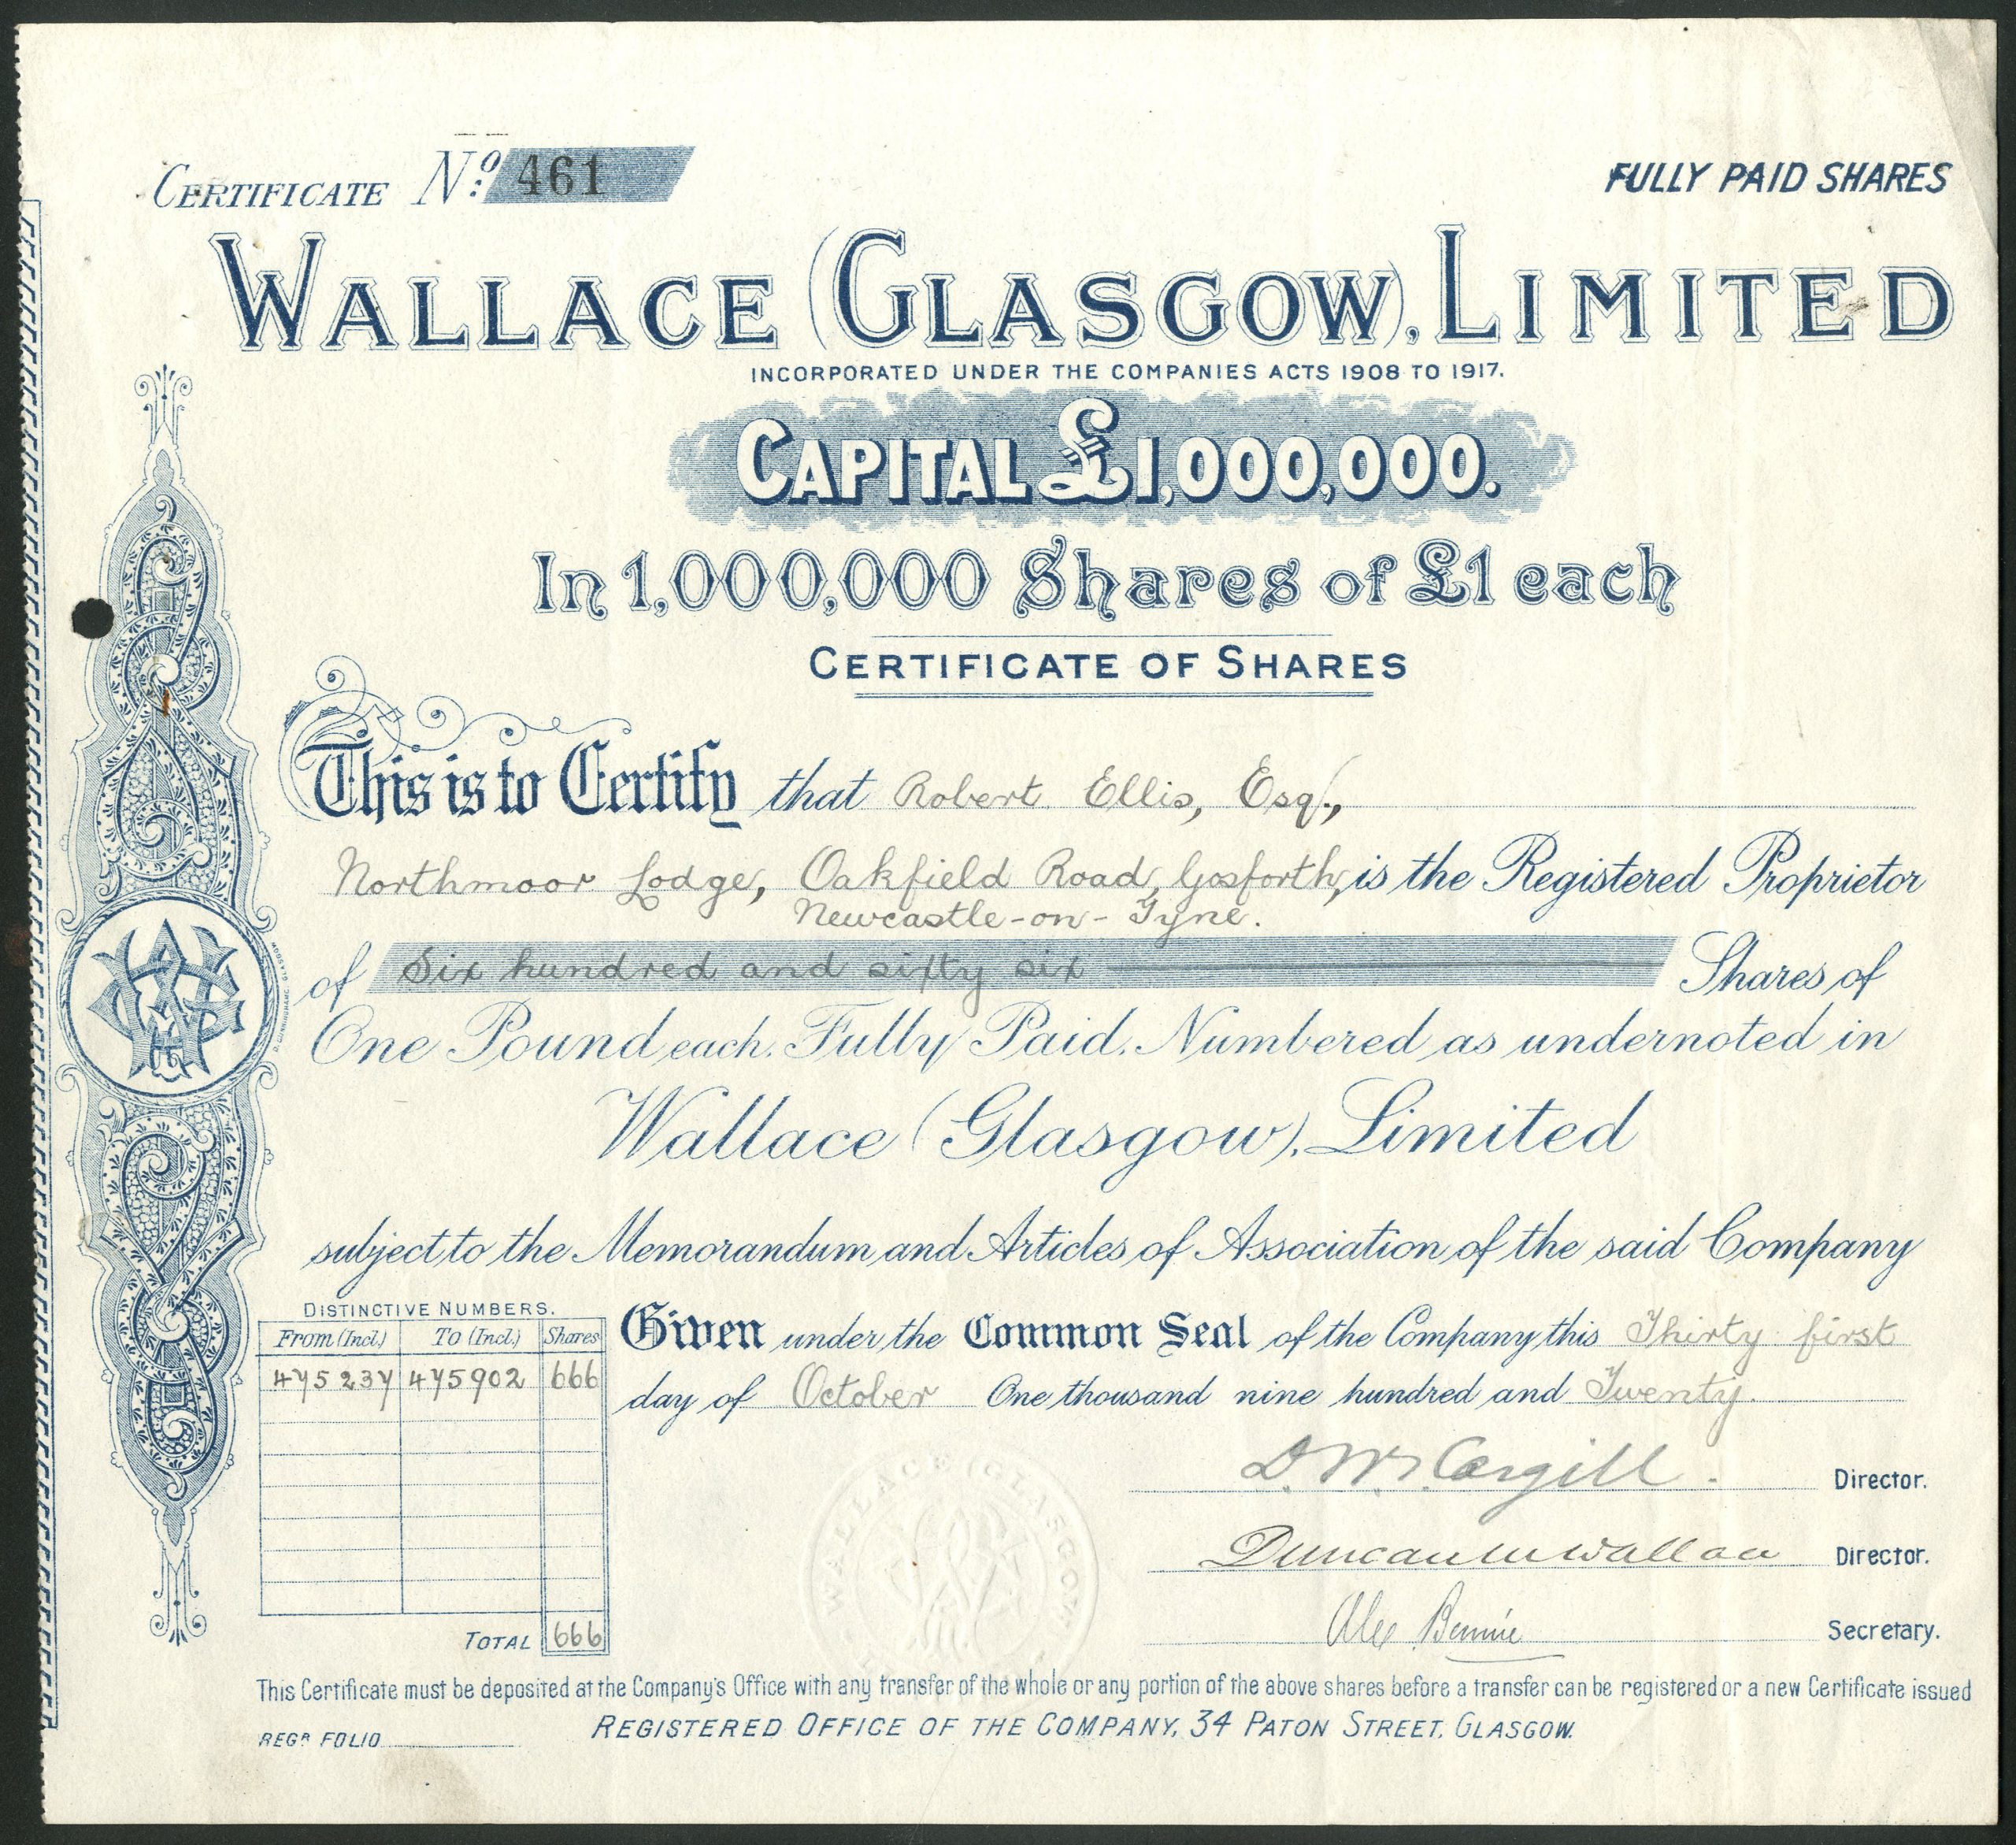 CERTIFICATE No: 461
FULLY PAID SHARES
WALLACE (GLASGOW), LIMITED
INCORPORATED UNDER THE COMPANIES ACTS 1908 TO 1917.
CAPITAL £1,000,000.
In 1,000,000 Shares of £1 each
CERTIFICATE OF SHARES
This is to Certify that Robert Ellis, Esq.,
Northmoor Lodge, Oakfield Road, Gosforth, is the Registered Proprietor
Newcastle-on-Tyne.
of Six hundred and sixty six Shares of
One Pound each. Fully Paid. Numbered as undernoted in
Wallace (Glasgow), Limited
subject to the Memorandum and Articles of Association of the said Company
DISTINCTIVE NUMBERS.
From (Incl.) To (Incl.) Shares
475237 475902 666
TOTAL 666
Given under the Common Seal of the Company this Thirty first
day of October One thousand nine hundred and Twenty.
D. W. Cargill. Director.
Duncan M Wallace Director.
Alex Bennie Secretary.
WALLACE (GLASGOW)
This Certificate must be deposited at the Company's Office with any transfer of the whole or any portion of the above shares before a transfer can be registered or a new Certificate issued
REGR FOLIO
REGISTERED OFFICE OF THE COMPANY, 34 PATON STREET, GLASGOW.